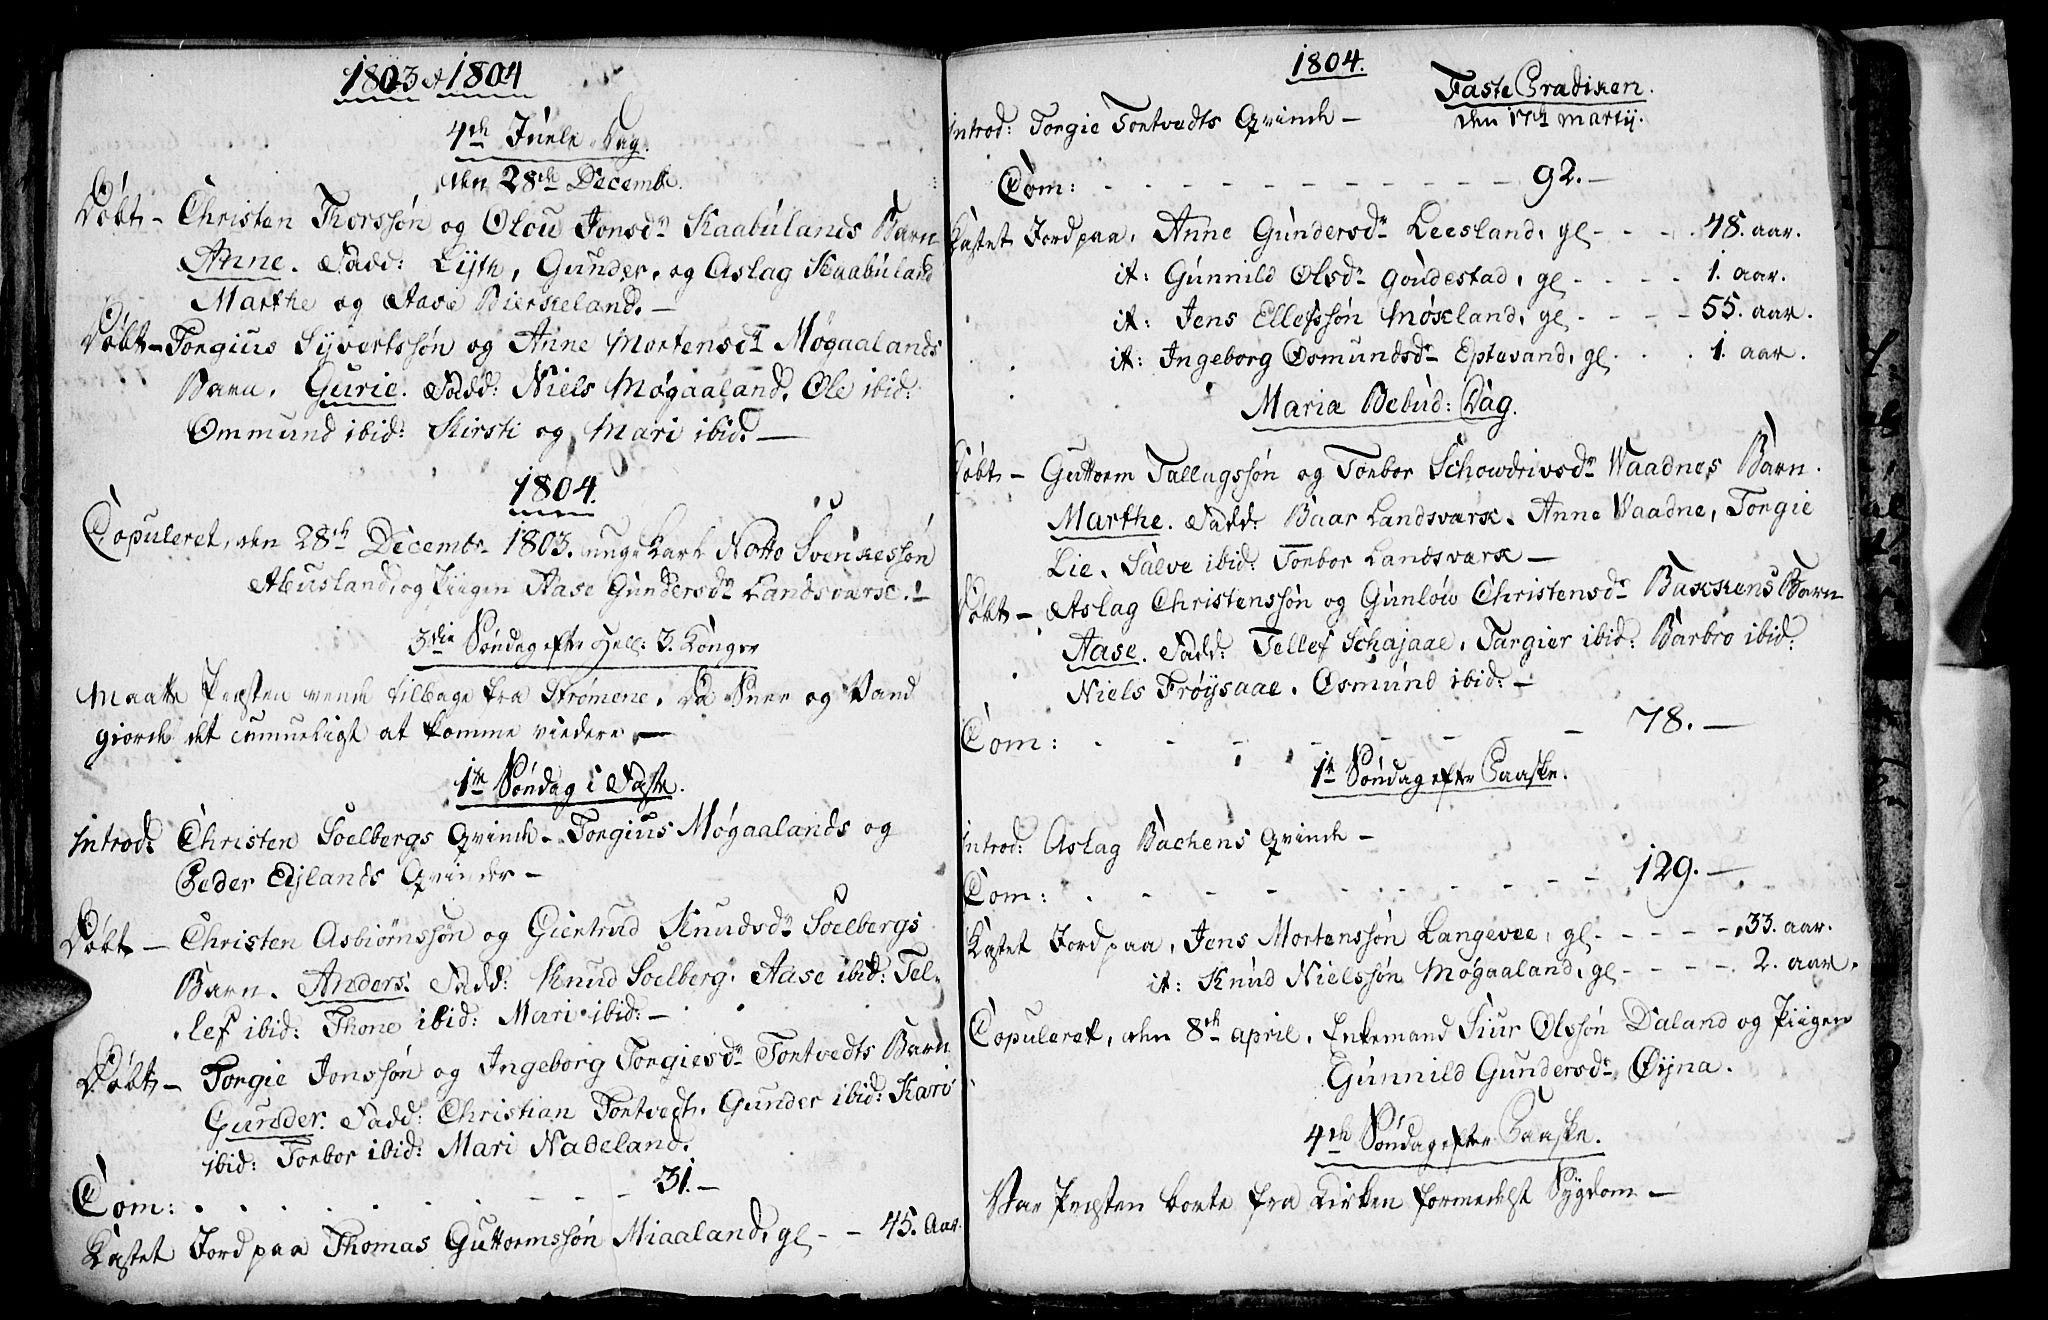 1803 & 1804
4de Juele Dag.
den 28de Decembr.
Døbt – Christen Thorssøn og Olou Jonsdr Kaabulands Barn
Anne. Fadd: Lijth, Gunder, og Aslag Kaabuland
Marthe og Aase Bierkeland. –
Døbt – Torgius Syvertssøn og Anne Mortensdr Møgaalands
Barn. Gurie. Fadd: Niels Møgaaland. Ole ibid:
Ommund ibid: Kirsti og Mari ibid. –
1804.
Copuleret, den 28de Decembr. 1803. unge Karl Notto Svenkessøn
Abusland, og Piigen Aase Gundersdr Landsværk. –
3die Søndag efter Hell: 3. Konger
Maatte Presten vende tilbage fra Strømene, da Snee og Vand
giorde det umueligt at komme viedere –
1te Søndag i Faste.
Introd: Christen Soelbergs Qvinde – Torgius Møgaalands og
Peder Eijlands Qvinder –
Døbt – Christen Asbiørnssøn og Giertrud Knudsdr Soelbergs
Barn. Anders. Fadd: Knud Soelberg. Aase ibid: Tel-
lef ibid: Thone ibid: Mari ibid: –
Døbt – Torgie Jonssøn og Ingeborg Torgiesdr Tortvedts Barn
Gunder. Fadd: Christian Tortvedt. Gunder ibid: Kari
ibid: Torbor ibid: Mari Nadeland.
Com: . . . . . . . – – – 31. –
Kastet Jord paa Thomas Guttormssøn Miaaland, gl – – 45. Aar.
1804.
Faste Prædiken.
den 17de Martij.
Introd: Torgie Tortvedts Qvinde –
Com: – – – – – – – – – – 92. –
Kastet Jord paa, Anne Gundersdr Leesland, gl – – – . 48. aar.
it: Gunnild Olsdr goudestad, gl – – – – 1. aar.
it: Jens Ellefssøn Møkland, gl – – – – 55. aar.
it: Ingeborg Osmundsdr Eptevand, gl . . . . 1. aar.
Maria Bebud: Dag.
Døbt – Guttorm Tallugssøn og Torbor Schowdrivsdr Waadnes Barn.
Marthe. Fadd: Baar Landsværk. Anne Waadne, Torgie
Lie. Salve ibid: Torbor Landsværk –
Døbt – Aslag Christenssøn og Gunlow Christensdr Bakkens Barn
Aase. Fadd: Tellef Schajaae. Targier ibid: Barbro ibid:
Niels Frøysaae. Osmund ibid: –
Com: . – – – – – – 78. –
1te Søndag efter Paaske.
Introd: Aslag Bachens Qvinde –
Com: . – – – – – – – – – – 129. –
Kastet Jord paa, Jens Mortenssøn Langevee, gl – – – – – 33. aar.
it: Knud Nielssøn Møgaaland, gl – – – – 2. aar.
Copuleret, den 8de april, Enkemand Siur Olssøn Daland og Piigen
Gunnild Gundersdr Øyna.
4de Søndag efter Paaske.
Var Presten borte fra Kirken formedelst Sygdom –